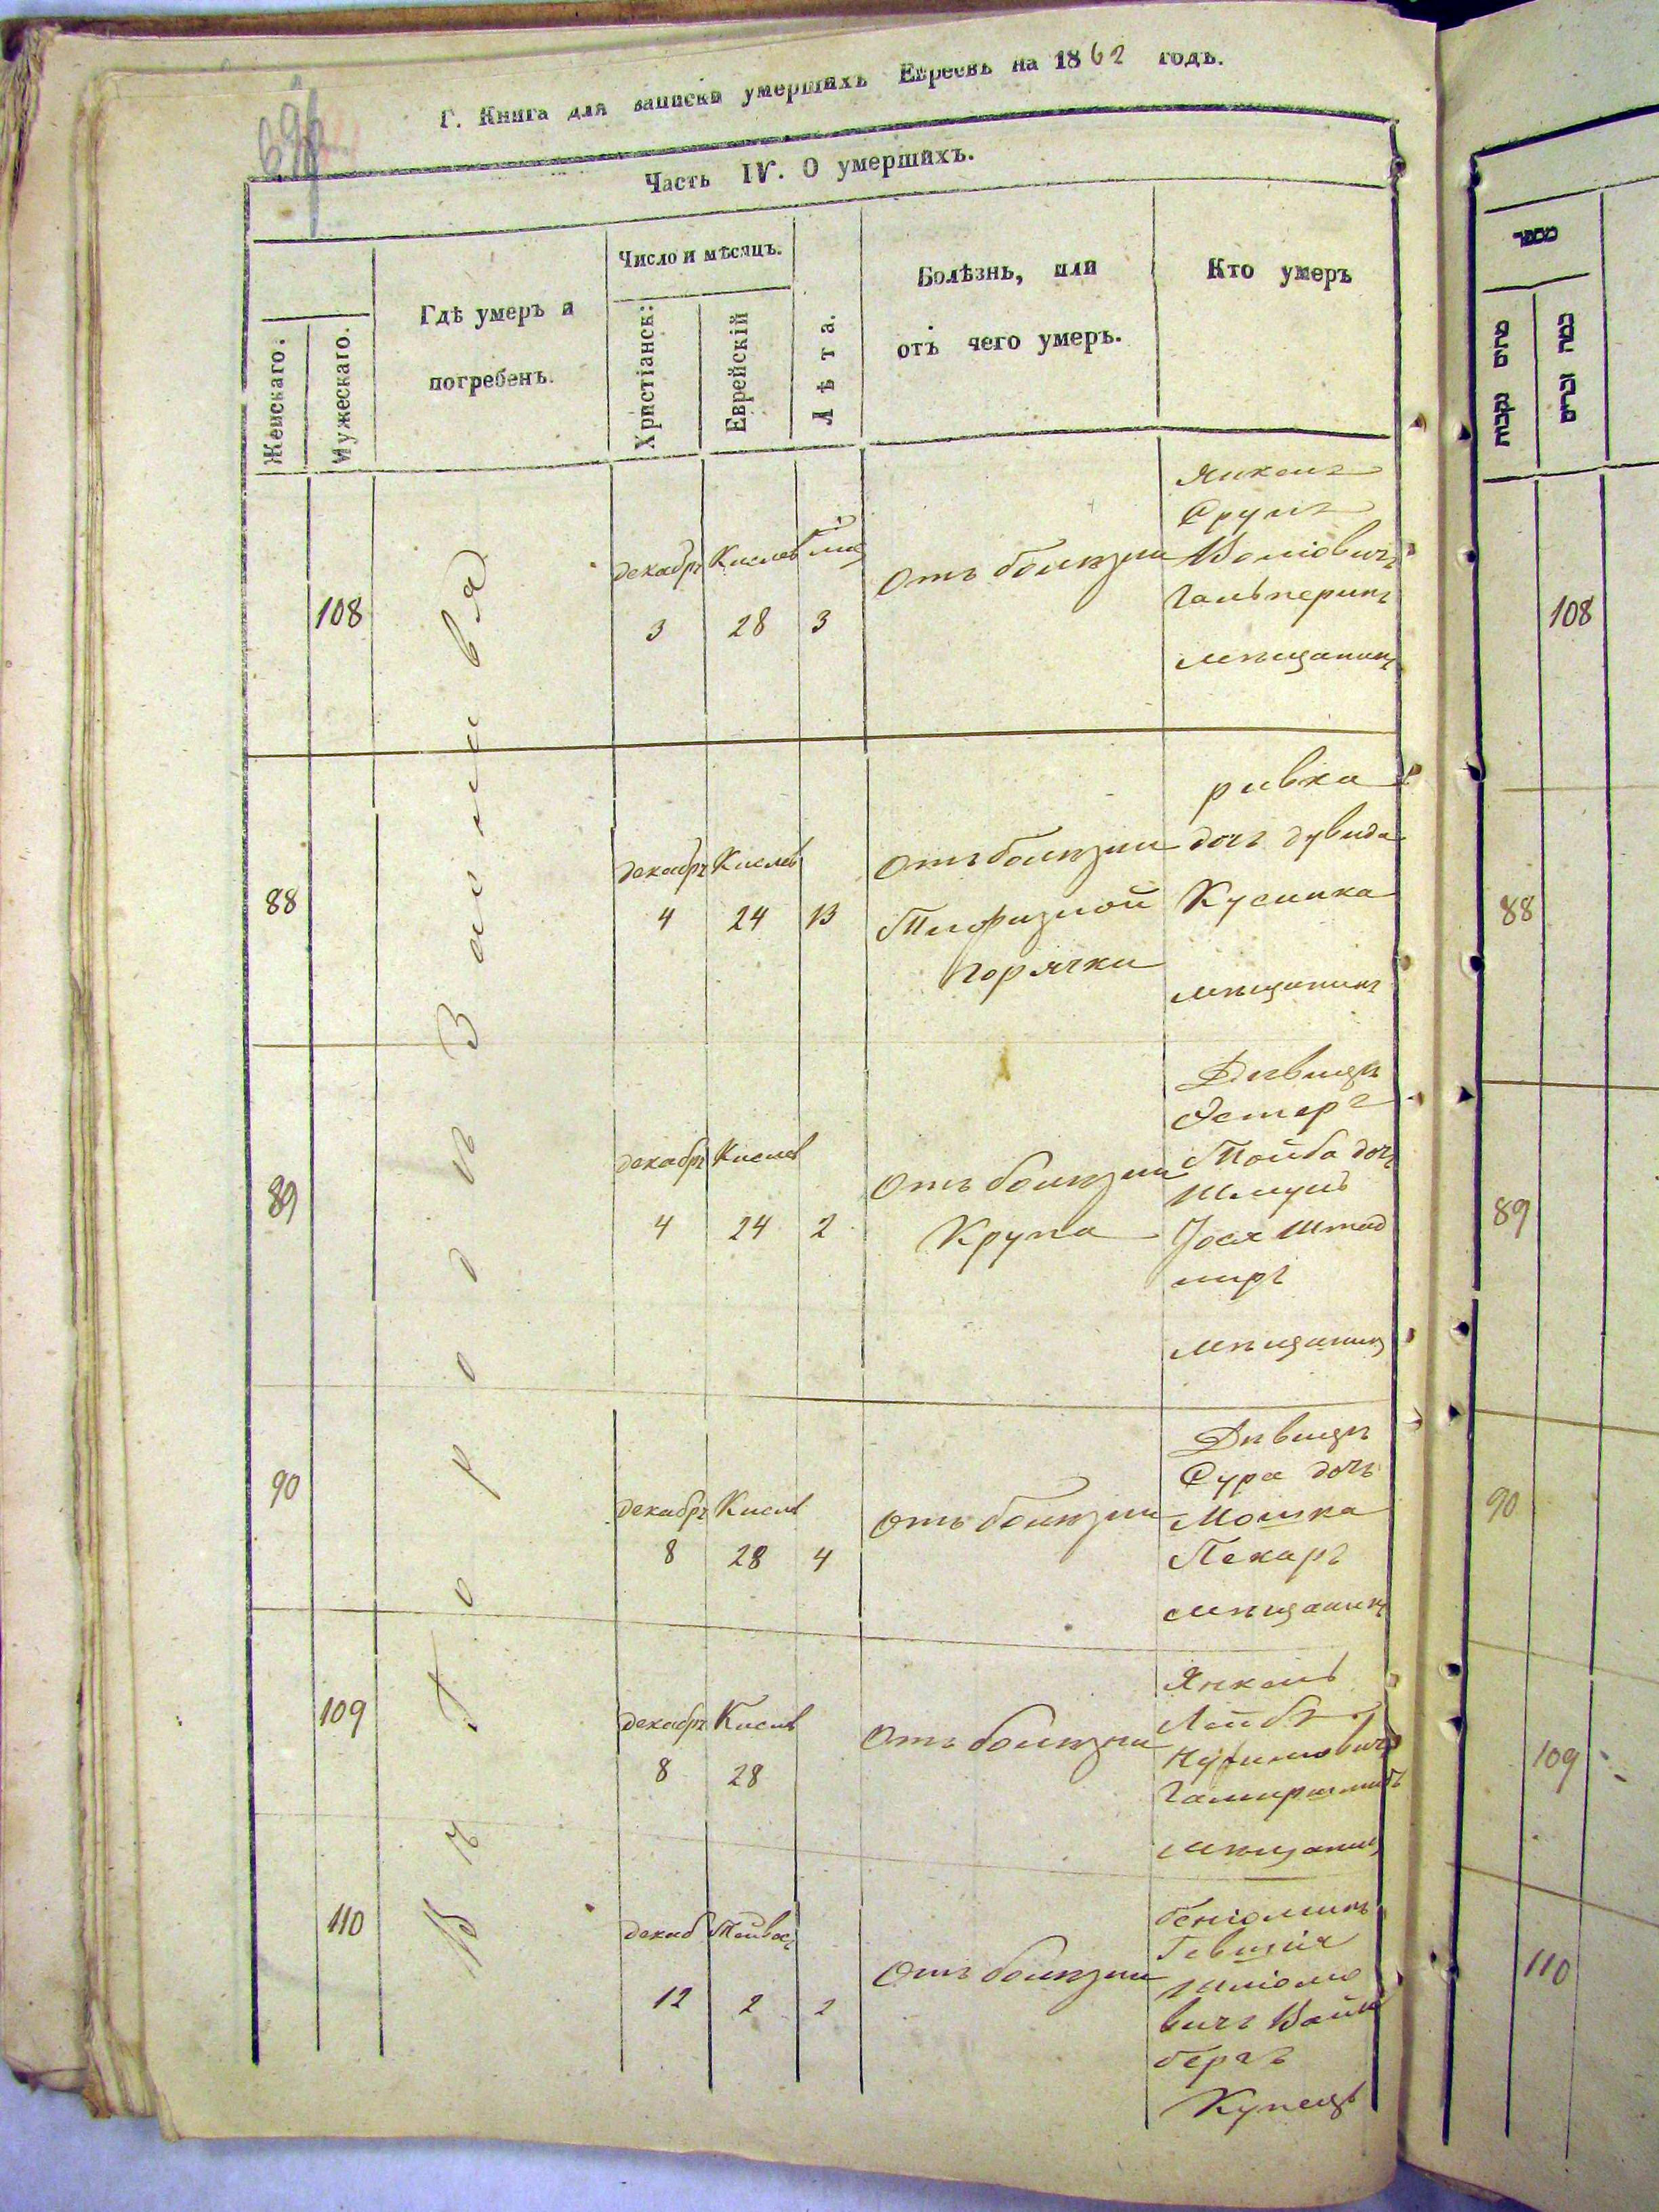 Г. Книга для записки умершихъ Евреевъ на 1862 годъ.
Часть IV. О умершихъ.
Женскаго.
Мужескаго.
Гдѣ умеръ и
погребенъ.
Число и мѣсяцъ.
Христіанск:
Еврейскій
Лѣта.
Болѣзнь, или
отъ чего умеръ.
Кто умеръ
Въ Городѣ
108
декабрь
3
Кислев
28
3
Отъ болѣзни
Янкель
Срулъ
Гальперинъ
мѣщанинъ
88
декабрь
4
Кислев
24
13
Отъ болѣзни
Тифозной
горячки
ривка
дочь дувида
Кусника
мѣщанинъ
89
декабрь
4
Кислев
24
2
Отъ болѣзни
Крупа
Дѣвица
Эстеръ
Тойба доч
Шмуль
Іося Штад
миръ
мѣщанинъ
90
декабрь
8
Кислев
28
4
Отъ болѣзни
Дѣвица
Сура дочь
Мошка
Пекаръ
мѣщанинъ
109
декабрь
8
Кислев
28
Отъ болѣзни
Янкель
Лейбъ
мѣщанинъ
110
декаб
12
Тейвес
2
2
Отъ болѣзни
беніоминъ
Шліомо
вичъ Вайн
бергъ
Купецъ
מספר
מתים נקבות
כמה זכרים
108
88
89
90
109
110